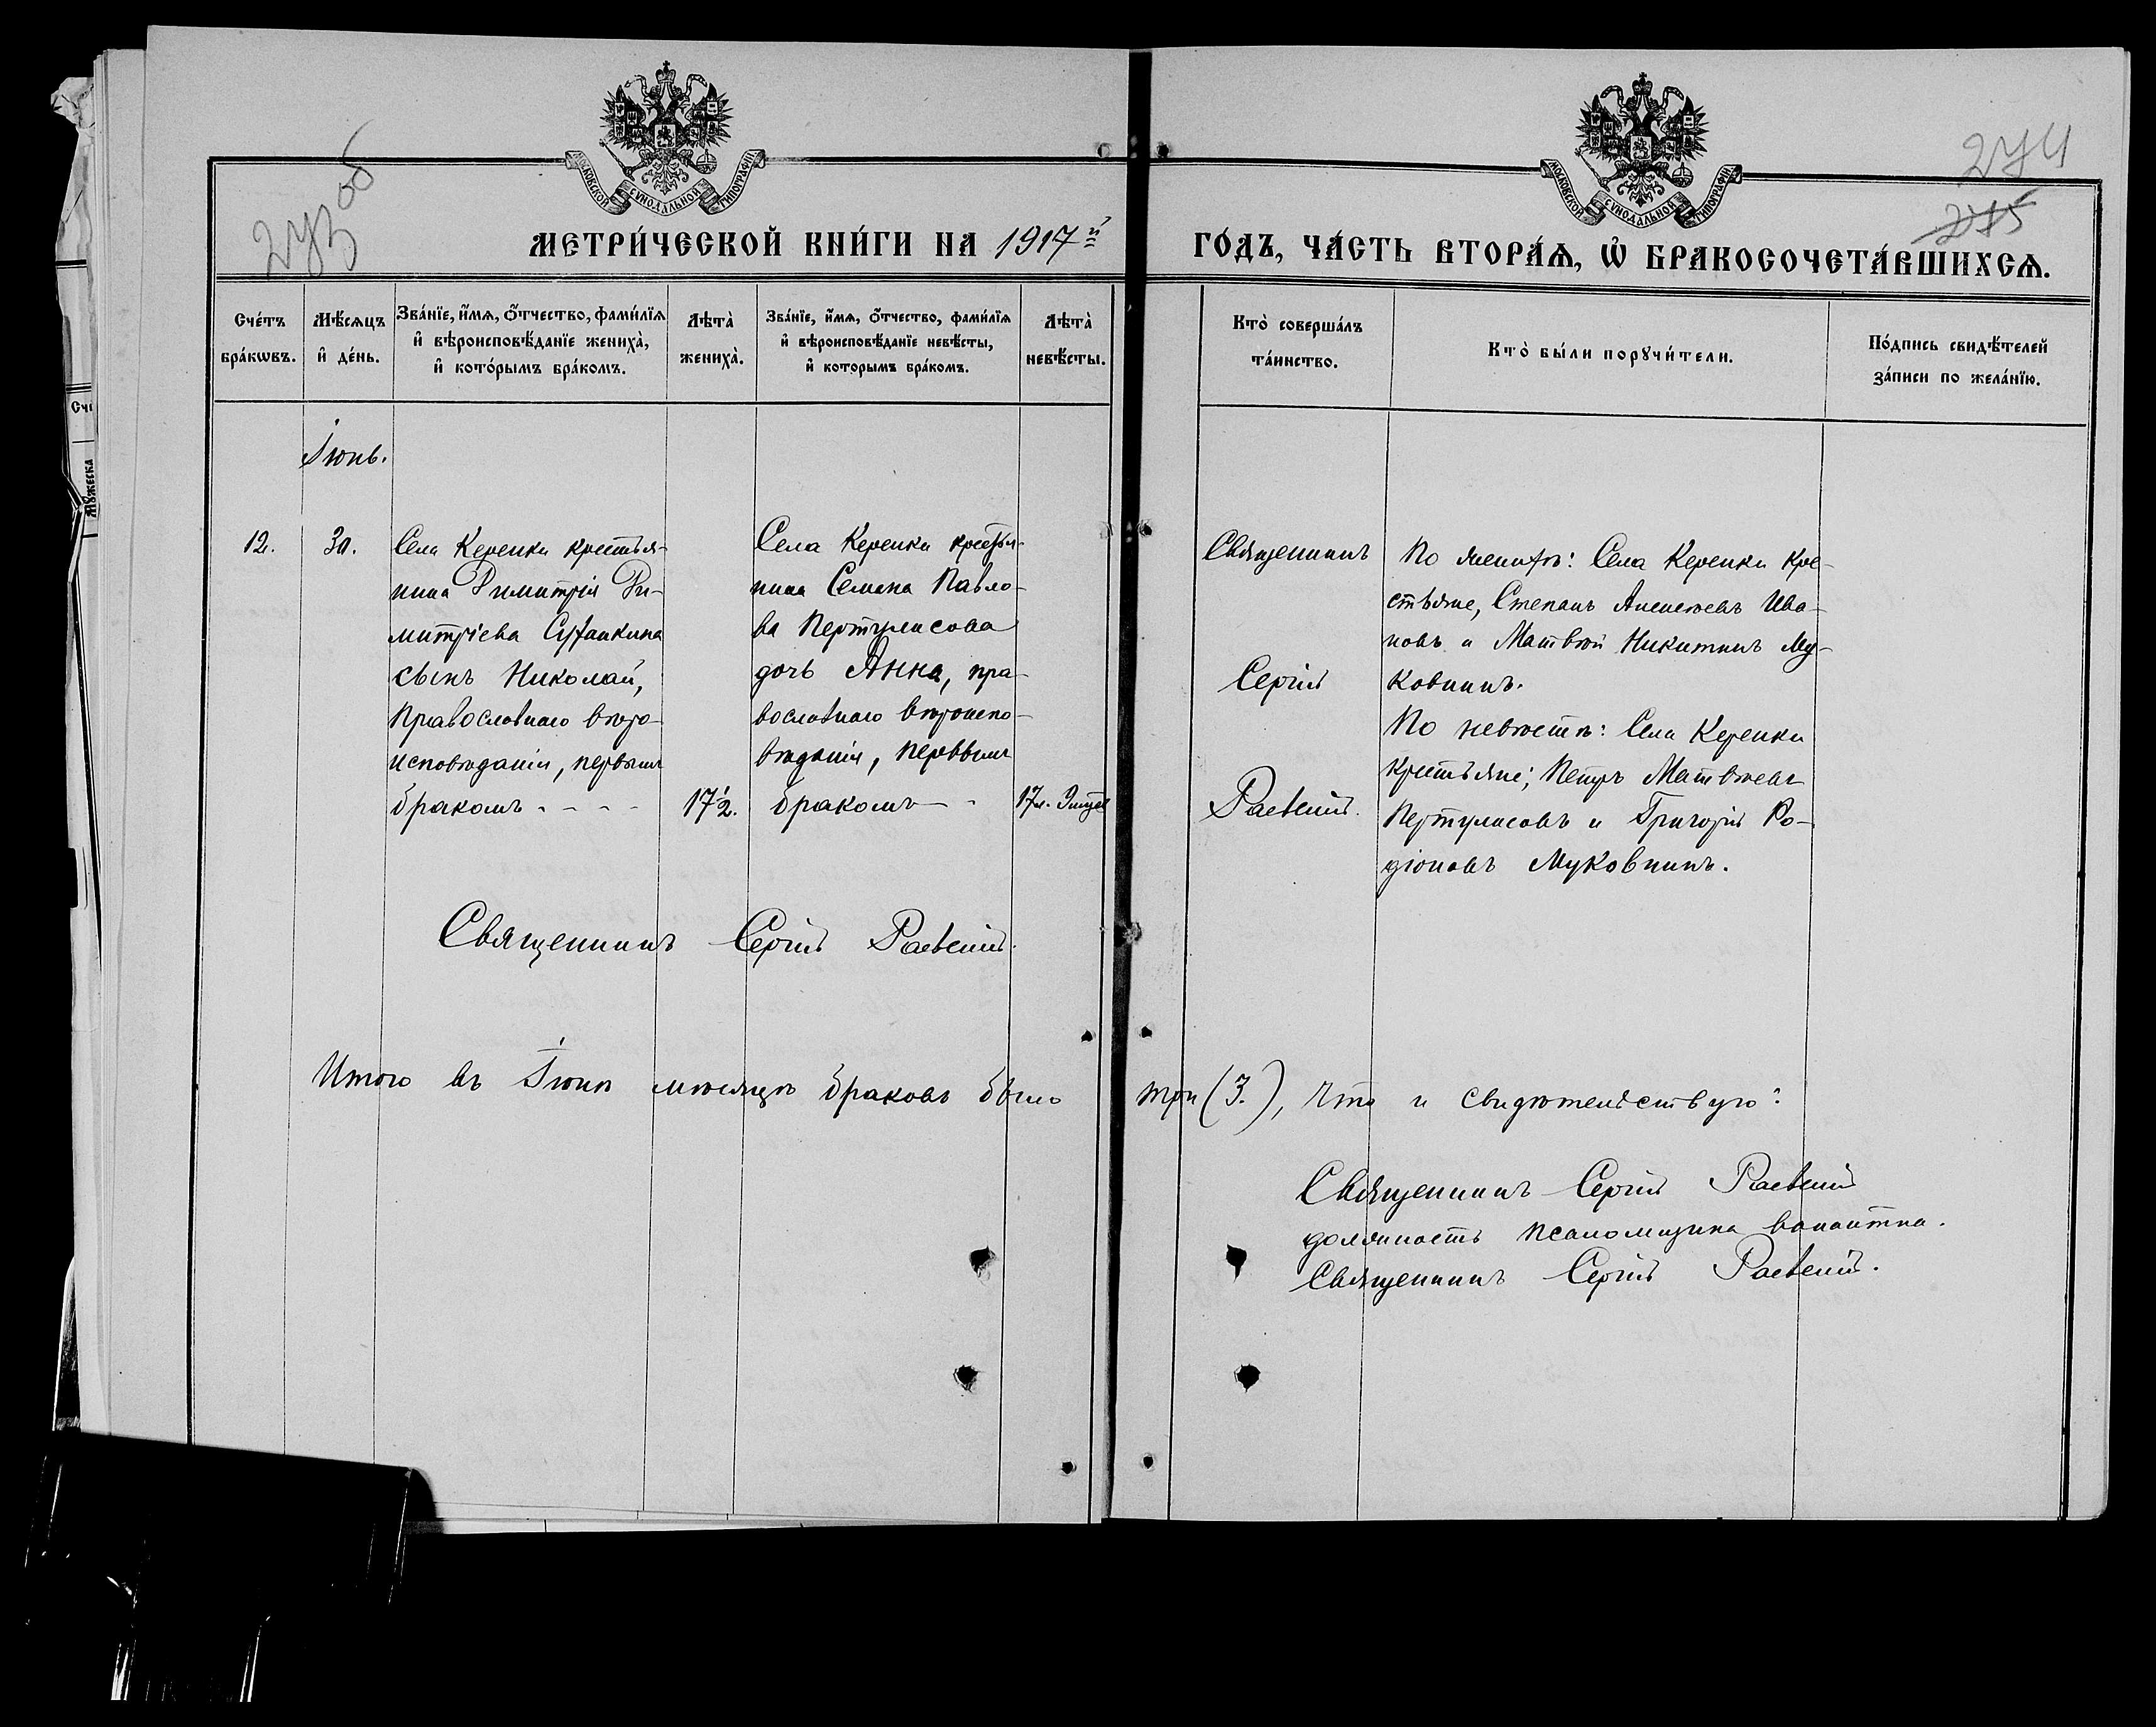 МОСКОВСКОЙ СѴНОДАЛЬНОЙ ТИПОГРАФІИ
МОСКОВСКОЙ СѴНОДАЛЬНОЙ ТИПОГРАФІИ
273 об
274
275
МЕТРИ́ЧЕСКОЙ КНИ́ГИ НА 1917й
ГО́ДЪ, ЧА́СТЬ ВТОРА́Ѧ, Ѽ БРАКОСОЧЕТА́ВШИХСѦ.
Сче́тъ бра́кѡвъ.
Мѣ́сѧцъ и҆ де́нь.
Зва́нїе, и҆́мѧ, ѻ҆́тчество, фами́лїѧ и҆ вѣроисповѣ́данїе жениха̀, и҆ кото́рымъ бра́комъ.
Лѣта̀ жениха̀.
Зва́нїе, и҆́мѧ, ѻ҆́тчество, фами́лїѧ и҆ вѣроисповѣ́данїе невѣ́сты, и҆ которымъ бра́комъ.
Лѣта̀ невѣ́сты.
Кто̀ соверша́лъ та́инство.
Кто̀ бы́ли порꙋчи́тели.
По́дпись свидѣ́телей за́писи по жела́нїю.
Іюнь.
12.
30.
Села Керенки крестья-
нина Димитрія Ди-
митріева
сынъ Николай,
православнаго вѣро-
исповѣданія, первымъ
бракомъ - - - -
17½.
Села Керенки крестья-
нина Семена Павло-
ва Пертулисова
дочь Анна, пра-
вославнаго вѣроиспо-
вѣданія, первымъ
бракомъ - -
17л.
Священникъ
Сергій
Раевскій.
По женихѣ: Села Керенки кре-
стьяне, Степанъ Алексѣевъ Ива-
новъ и Матвѣй Никитинъ Му-
ковнинъ.
По невѣстѣ: Села Керенки
крестьяне; Петръ Матвѣевъ
Пертулисовъ и Григорій Ро-
діоновъ Муковнинъ.
Священникъ Сергій Раевскій.
Итого въ Іюнѣ мѣсяцѣ браковъ было три (3.), что и свидѣтельствую:
Священникъ Сергій Раевскій
должность псаломщика вакантна.
Священникъ Сергій Раевскій.